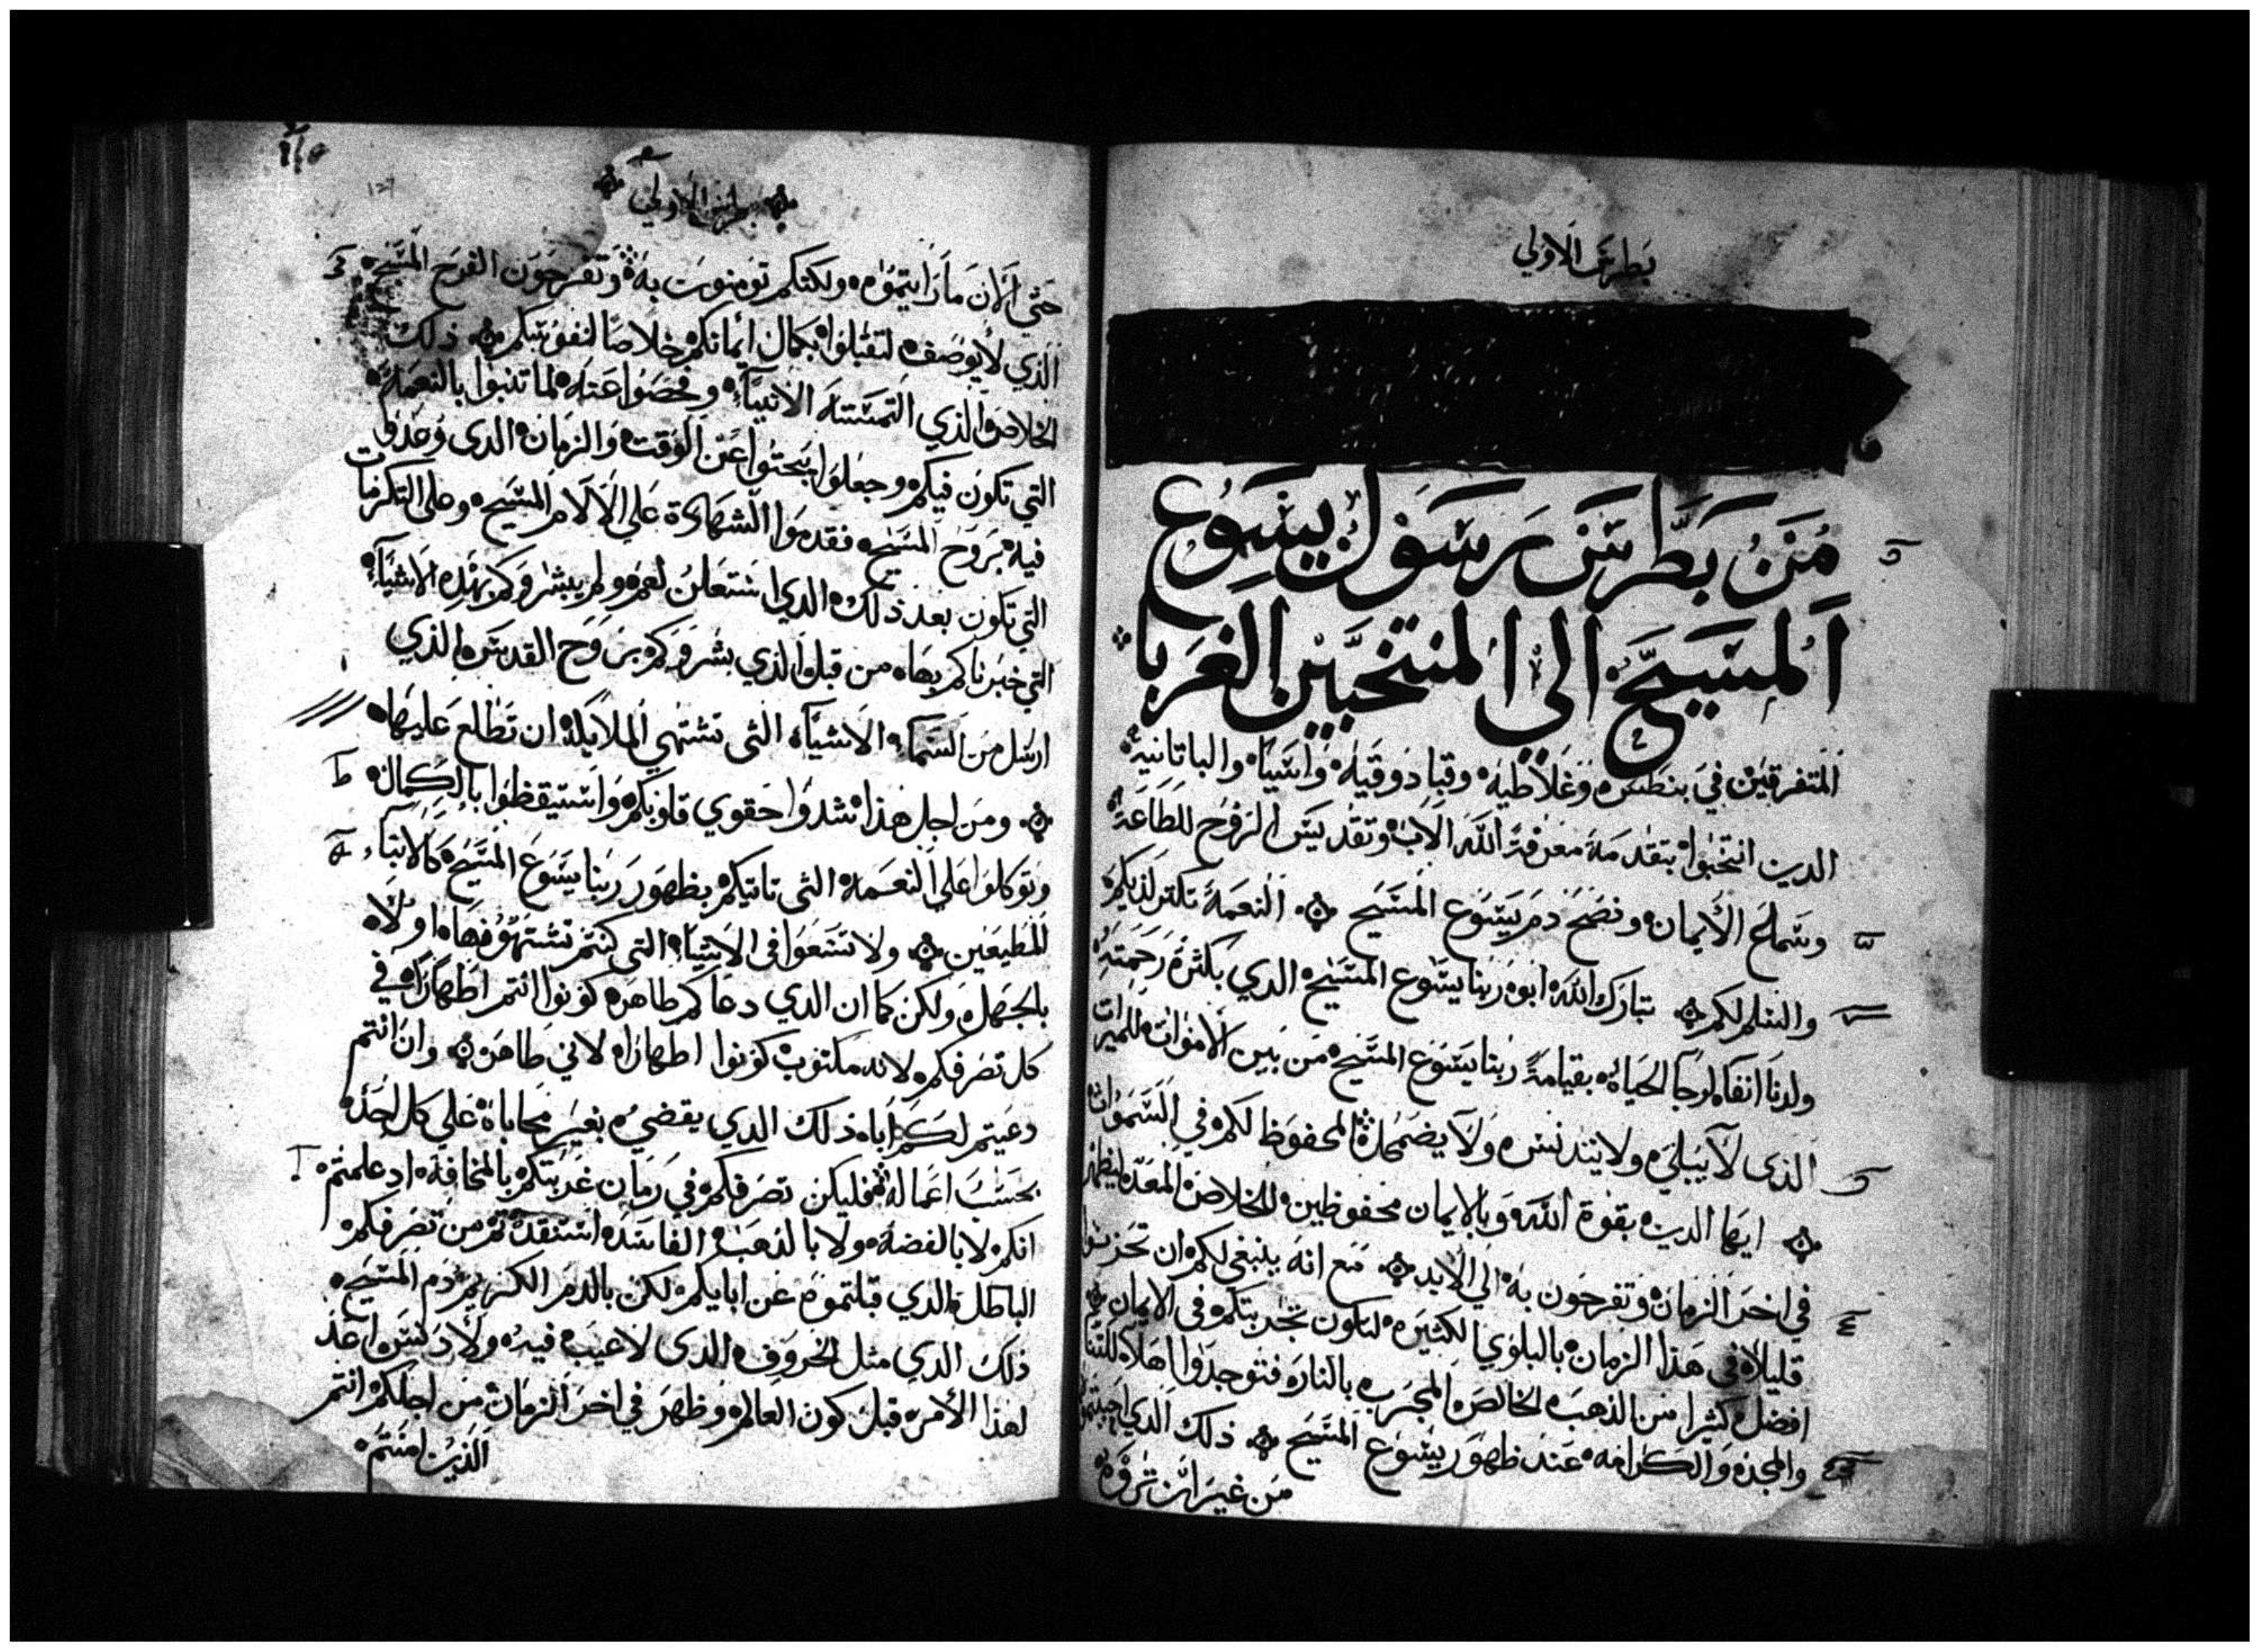 بطرس الاولي
من بطرس رسول يسوع
المسيح الي المنتخبين الغربا
المتفرقين في بنطس وغلاطيه وقبادوقيه واسيا والباتانية
الدين انتخبوا بتقدمة معرفة الله الاب وتقديس الروح للطاعة
وسماع الايمان ونضح دم يسوع المسيح النعمة تكتر لديكم
والسلم لكم تبارك الله ابو ربنا يسوع المسيح الدي بكثرة رحمته
ولدنا انفا لرجا الحياة بقيامة ربنا يسوع المسيح من بين الاموات للميرات
الذى لا يبلي ولا يتدنس ولا يضمحل المحفوظ لكم في السموات
ايها الدين بقوة الله وبالايمان محفوظين للخلاص المعد ليظهر
في اخر الزمان وتفرحون به الي الابد مع انه ينبغي لكم ان تحزنوا
قليلا في هذا الزمان بالبلوي الكثيره لتكون تجربتكم في الايمان
افضل كثيرا من الذهب الخالص المجرب بالنار فتوجدوا اهلا للثنا
والمجد والكرامه عند ظهور يسوع المسيح ذلك الدي احببتموه
من غير ان تروه
بطرس الاولي
حتي الان ما رايتموه ولكنكم تومنون به وتفرحون الفرح المسيح
الذي لا يوصف لتقبلوا بكمال ايمانكم خلاصا لنفوسكم ذلك
الخلاص الذي التمسته الانبياء وفحصوا عنه لما تنبوا بالنعمة
التي تكون فيكم وجعلوا يبحتوا عن الوقت والزمان الدى وعدوا
فيه بروح المسيح فقدموا الشهادة علي الالام المسيح وعلى التكرمات
التي تكون بعد ذلك الدي استعلن لهم ولم يبشروكم بهذه الاشياء
التي خبرناكم بها من قبل الذي بشروكم بروح القدس الذي
ارسل من السماء الاشياء التى تشتهي الملايكة ان تطلع عليها
ومن اجل هذا شدوا حقوي قلوبكم واستيقظوا بالكمال
وتوكلوا علي النعمة التى تاتيكم بظهور ربنا يسوع المسيح كالابناء
المطيعين ولا تتسعوا في الاشياء التى كنتم تشتهونها اولا
بالجهل ولكن كما ان الدي دعاكم طاهر كونوا انتم اطهارا في
كل تصرفكم لانه مكتوب كونوا اطهارا لاني طاهر وان انتم
دعيتم لكم ابا ذلك الدي يقضي بغير محاباة علي كل احد
بحسب اعماله فليكن تصرفكم في زمان غربتكم بالمخافة اد علمتم
انكم لا بالفضه ولا بالذهب الفاسد استنقدتم من تصرفكم
الباطل الدي قبلتموه عن ابايكم لكن بالدم الكريم دم المسيح
ذلك الدي مثل الخروف الذى لا عيب فيه ولا دنس
لهذا الامر قبل كون العالم وظهر في اخر الزمان من اجلكم انتم
الذين امنتم